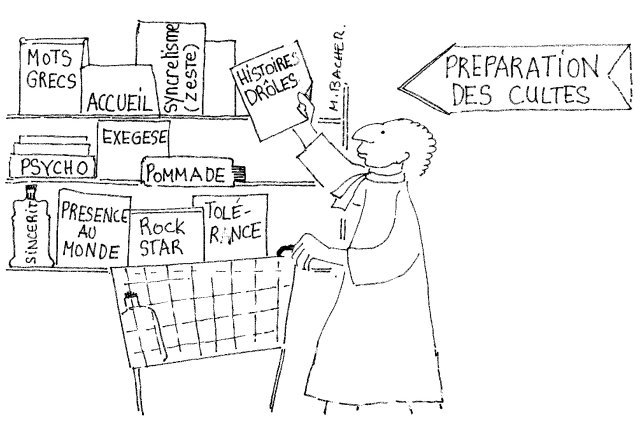 MOTS
GRECS
ACCUEIL
Syncretisme
(zeste)
HISTOIRES
DRÔLES
M.BACHER.
PREPARATION
DES CULTES
EXEGESE
PSYCHO
POMMADE
SINCERIT
PRESENCE
AU
MONDE
ROCK
STAR
TOLÉ-
RANCE